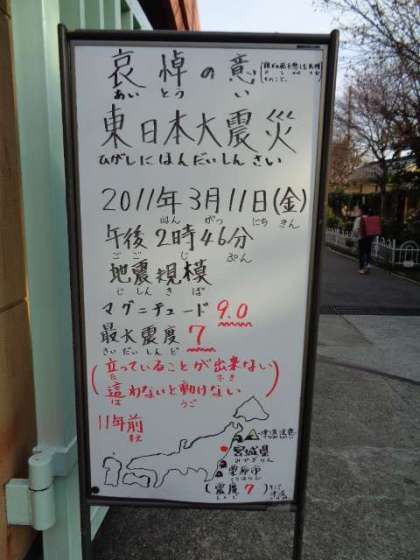 哀悼の意
あいとう い
東日本大震災
ひがしにほんだいしんさい
2011年3月11日(金)
ねん がつ にち きん
午後2時46分
ごご じ ぷん
地震規模
じしんきぼ
マグニチュード 9.0
最大震度 7
さいだいしんど
(立っていることが出来ない
た でき
這わないと動けない)
は うご
11年前
まえ
宮城県
みやぎけん
栗原市
(震度 7)
しんど